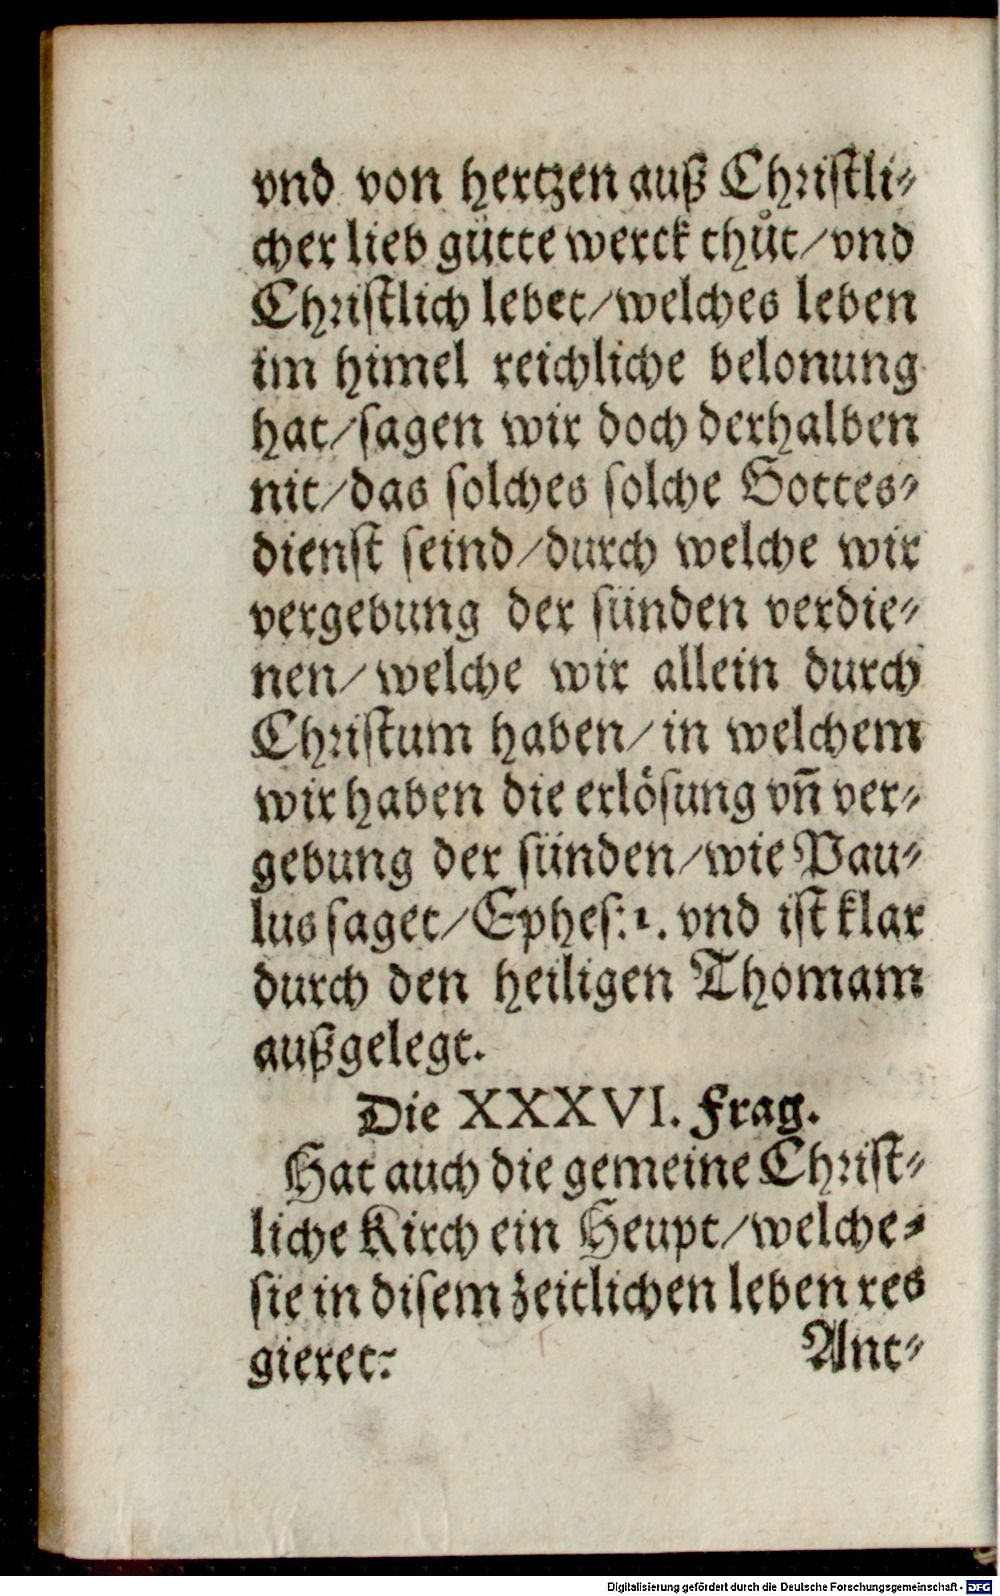 vnd von hertzen auß Christli⸗
cher lieb gütte werck thůt/vnd
Christlich lebet/welches leben
im himel reichliche belonung
hat/sagen wir doch derhalben
nit/das solches solche Gottes⸗
dienst seind/durch welche wir
vergebung der sünden verdie⸗
nen/welche wir allein durch
Christum haben/in welchem
wir haben die erlösung vn̄ ver⸗
gebung der sünden/wie Pau⸗
lus saget/Ephes:1. vnd ist klar
durch den heiligen Thomam
außgelegt.
Die XXXVI. Frag.
Hat auch die gemeine Christ⸗
liche Kirch ein Heupt/welche⸗
sie in disem zeitlichen leben res
gieret:
Ant⸗
Digitalisierung gefördert durch die Deutsche Forschungsgemeinschaft - DFG